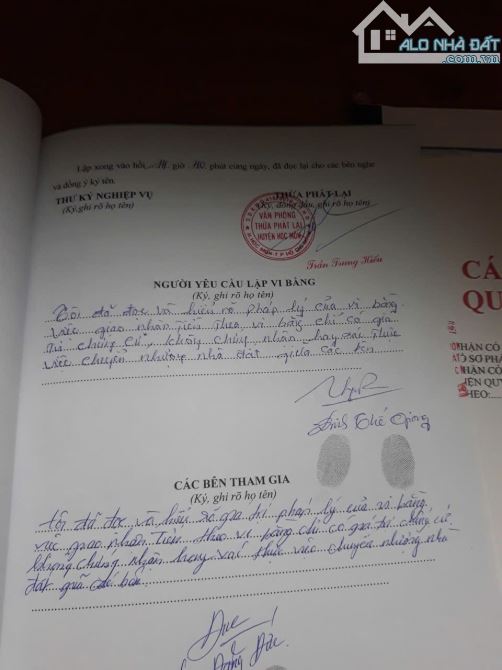 ALO NHÀ ĐẤT
.com.vn
Lập xong vào hồi 14 giờ 40 phút cùng ngày, đã đọc lại cho các bên nghe
và đồng ý ký tên.
THƯ KÝ NGHIỆP VỤ
(Ký, ghi rõ họ tên)
THỪA PHÁT LẠI
(Ký, đóng dấu, ghi rõ họ tên)
VĂN PHÒNG
THỪA PHÁT LẠI
HUYỆN HÓC MÔN
Trần Trung Hiếu
NGƯỜI YÊU CẦU LẬP VI BẰNG
(Ký, ghi rõ họ tên)
Tôi đã đọc và hiểu rõ pháp lý của vi bằng
việc giao nhận tiền theo vi bằng chỉ có giá
trị chứng cứ, không chứng nhận hay xác thực
việc chuyển nhượng nhà đất giữa các bên
CÁC BÊN THAM GIA
(Ký, ghi rõ họ tên)
Tôi đã đọc và hiểu rõ giá trị pháp lý của vi bằng
việc giao nhận tiền theo vi bằng chỉ có giá trị chứng cứ
không chứng nhận hay xác thực việc chuyển nhượng nhà
đất giữa các bên
Đức
CÁ
QU
NHẬN CÓ
SƠ PHÁ
NHẬN CÓ
YÊN QUY
HEO: